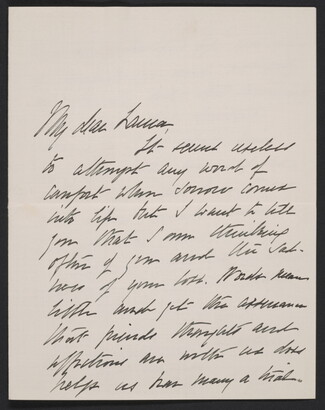 My dear Laura,
It seems useless
to attempt any word of
comfort when sorrow comes
into life but I want to tell
you that I am thinking
often of you and the sad-
ness of your loss. Words mean
little and yet the assurance
that friends thoughts and
affections are with us does
helps us bear many a trial.